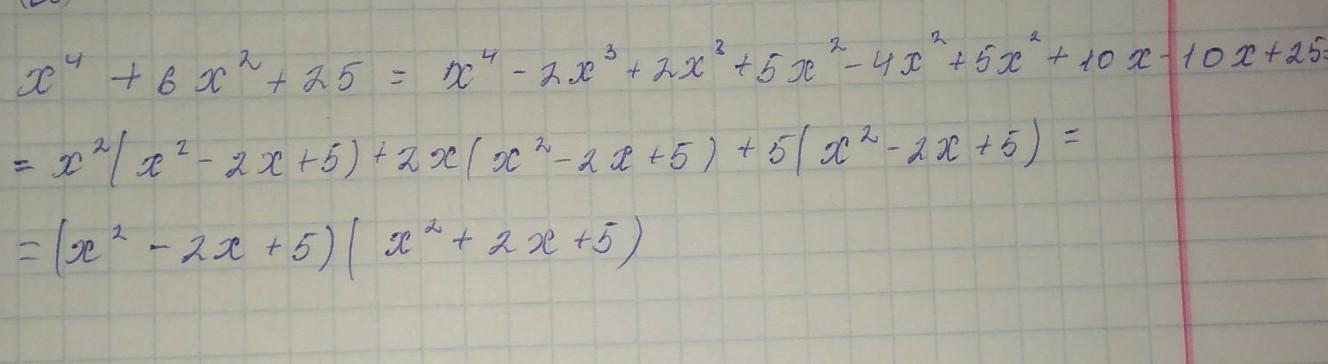 x⁴ + 6x² + 25 = x⁴ - 2x³ + 2x³ + 5x² - 4x² + 5x² + 10x - 10x + 25 =
= x²(x² - 2x + 5) + 2x(x² - 2x + 5) + 5(x² - 2x + 5) =
= (x² - 2x + 5)(x² + 2x + 5)